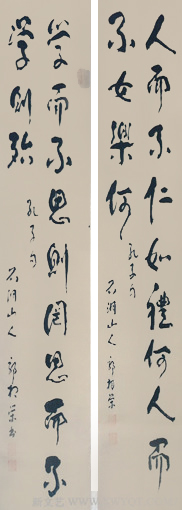 人而不仁如禮何人而
不仁如樂何
孔子句
石湖山人
學而不思則罔思而不
學則殆
孔子句
石湖山人